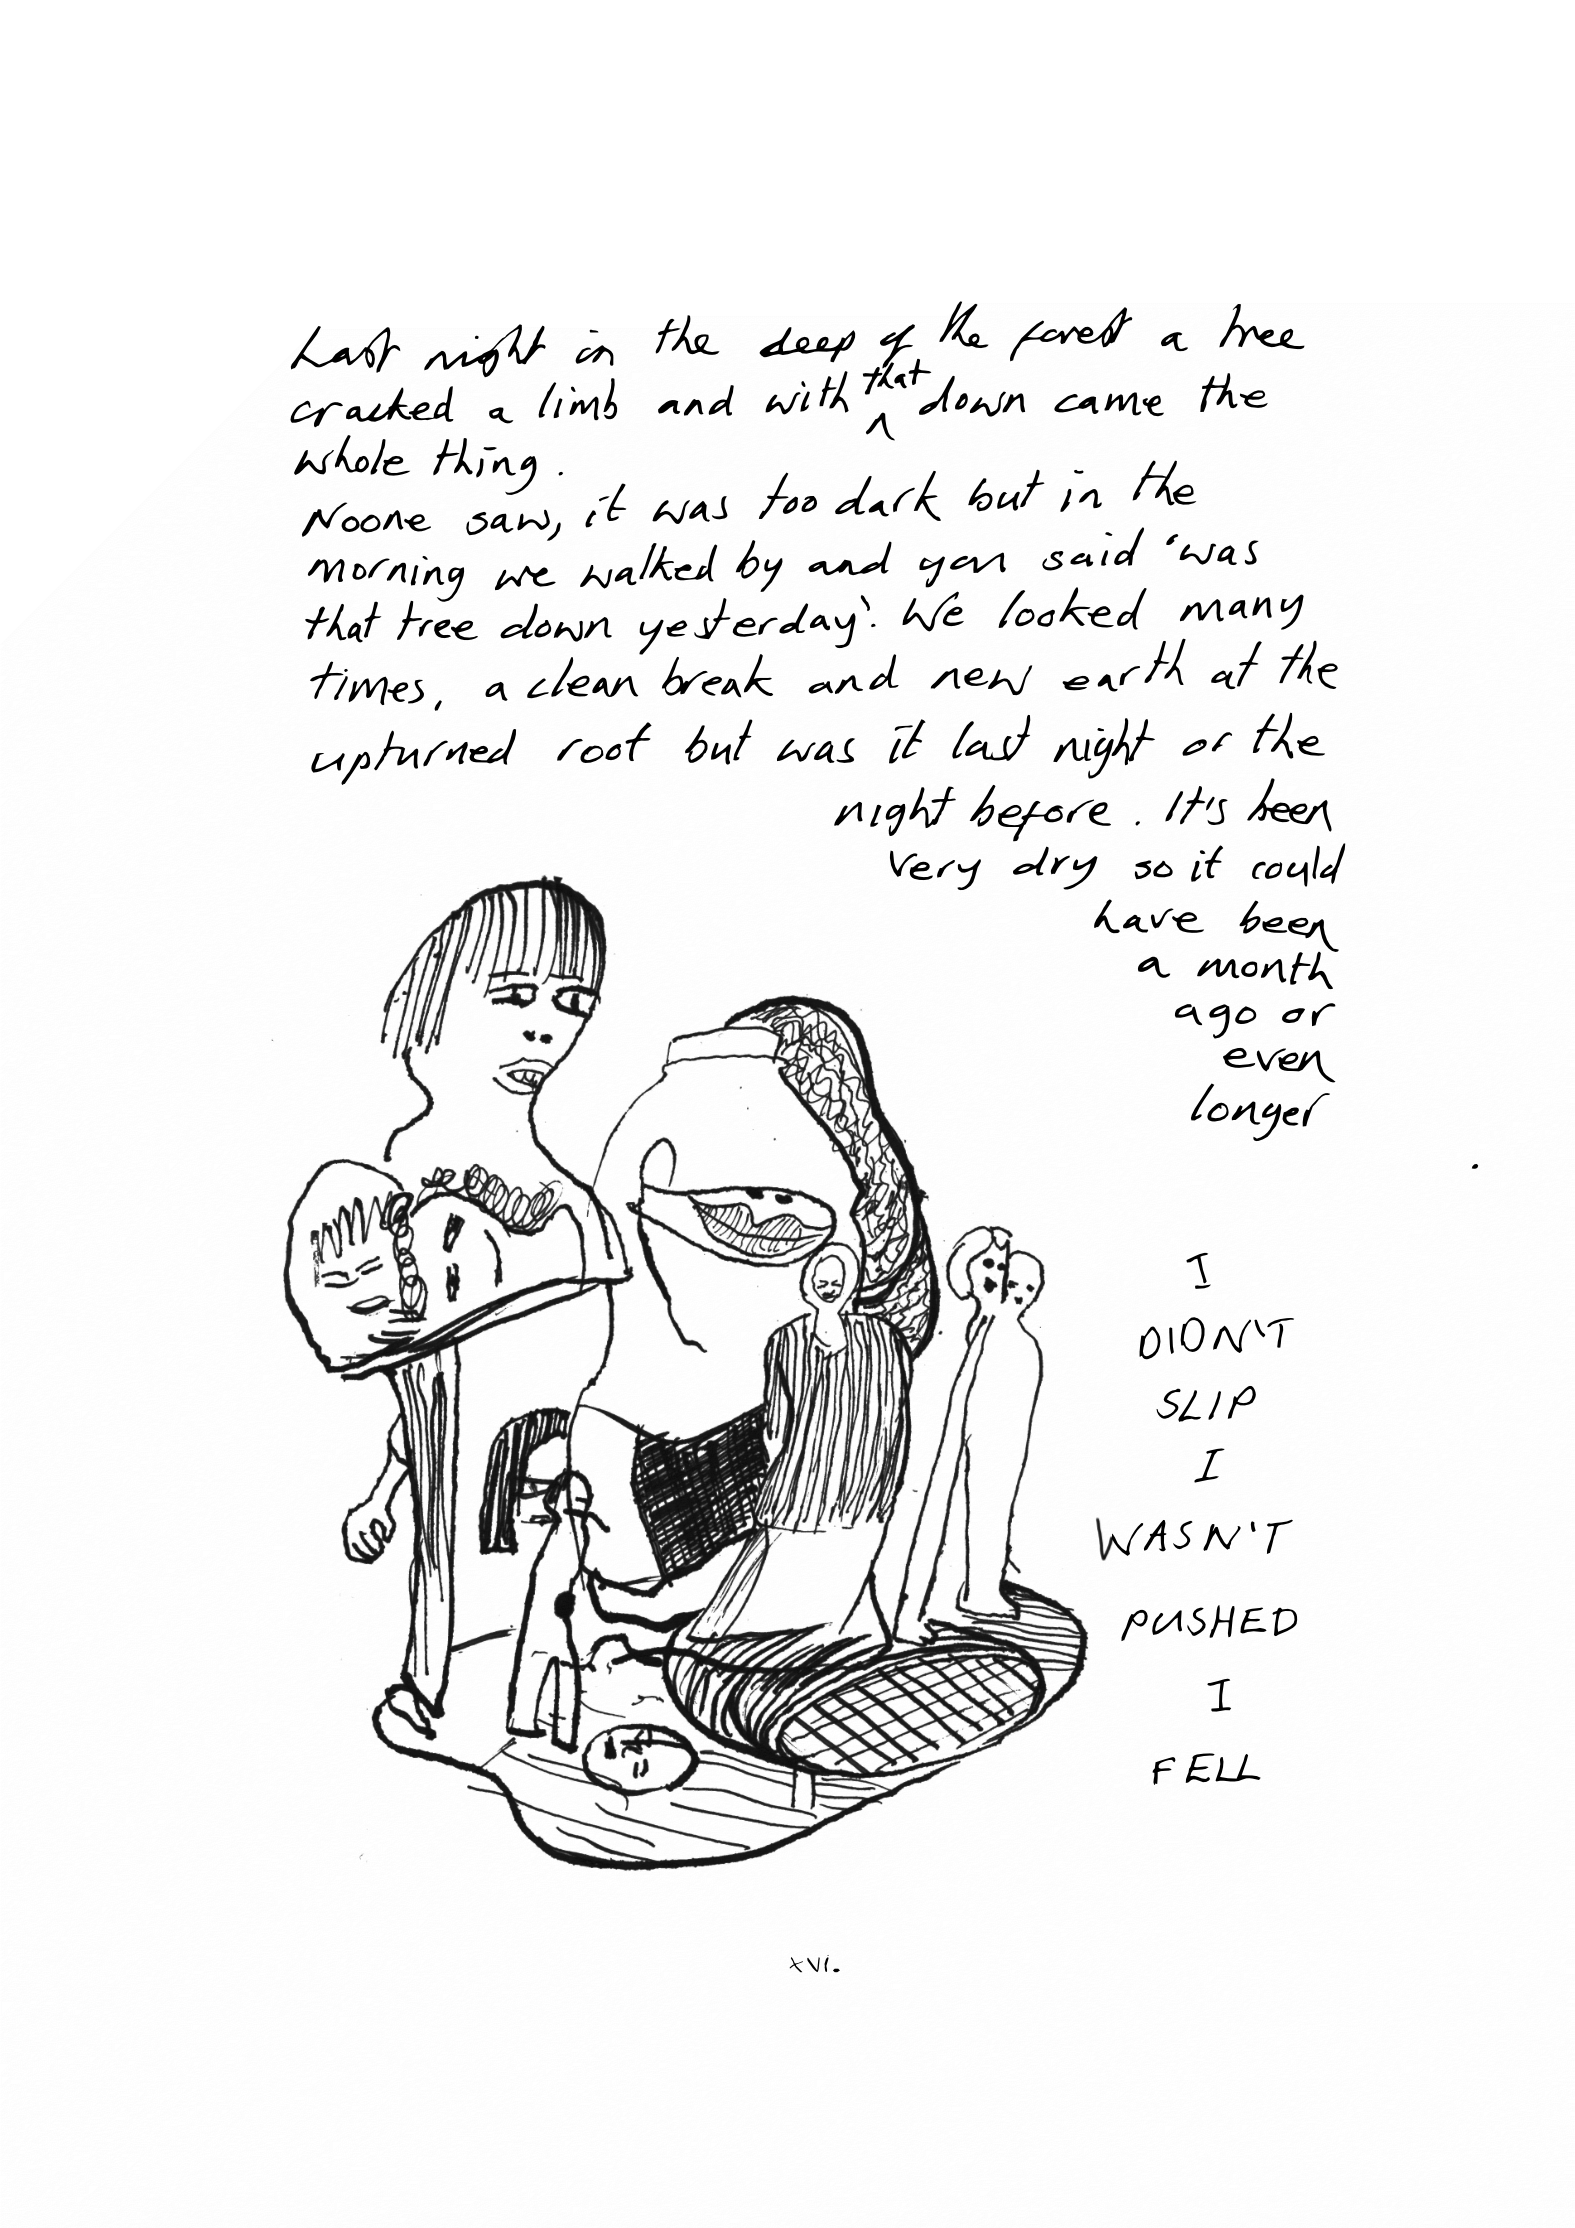 Last night in the deep of the forest a tree
cracked a limb and with that down came the
whole thing.
Noone saw, it was too dark but in the
morning we walked by and you said 'was
that tree down yesterday'. We looked many
times, a clean break and new earth at the
upturned root but was it last night or the
night before. It's been
very dry so it could
have been
a month
ago or
even
longer
I
DIDN'T
SLIP
I
WASN'T
PUSHED
I
FELL
xvi.